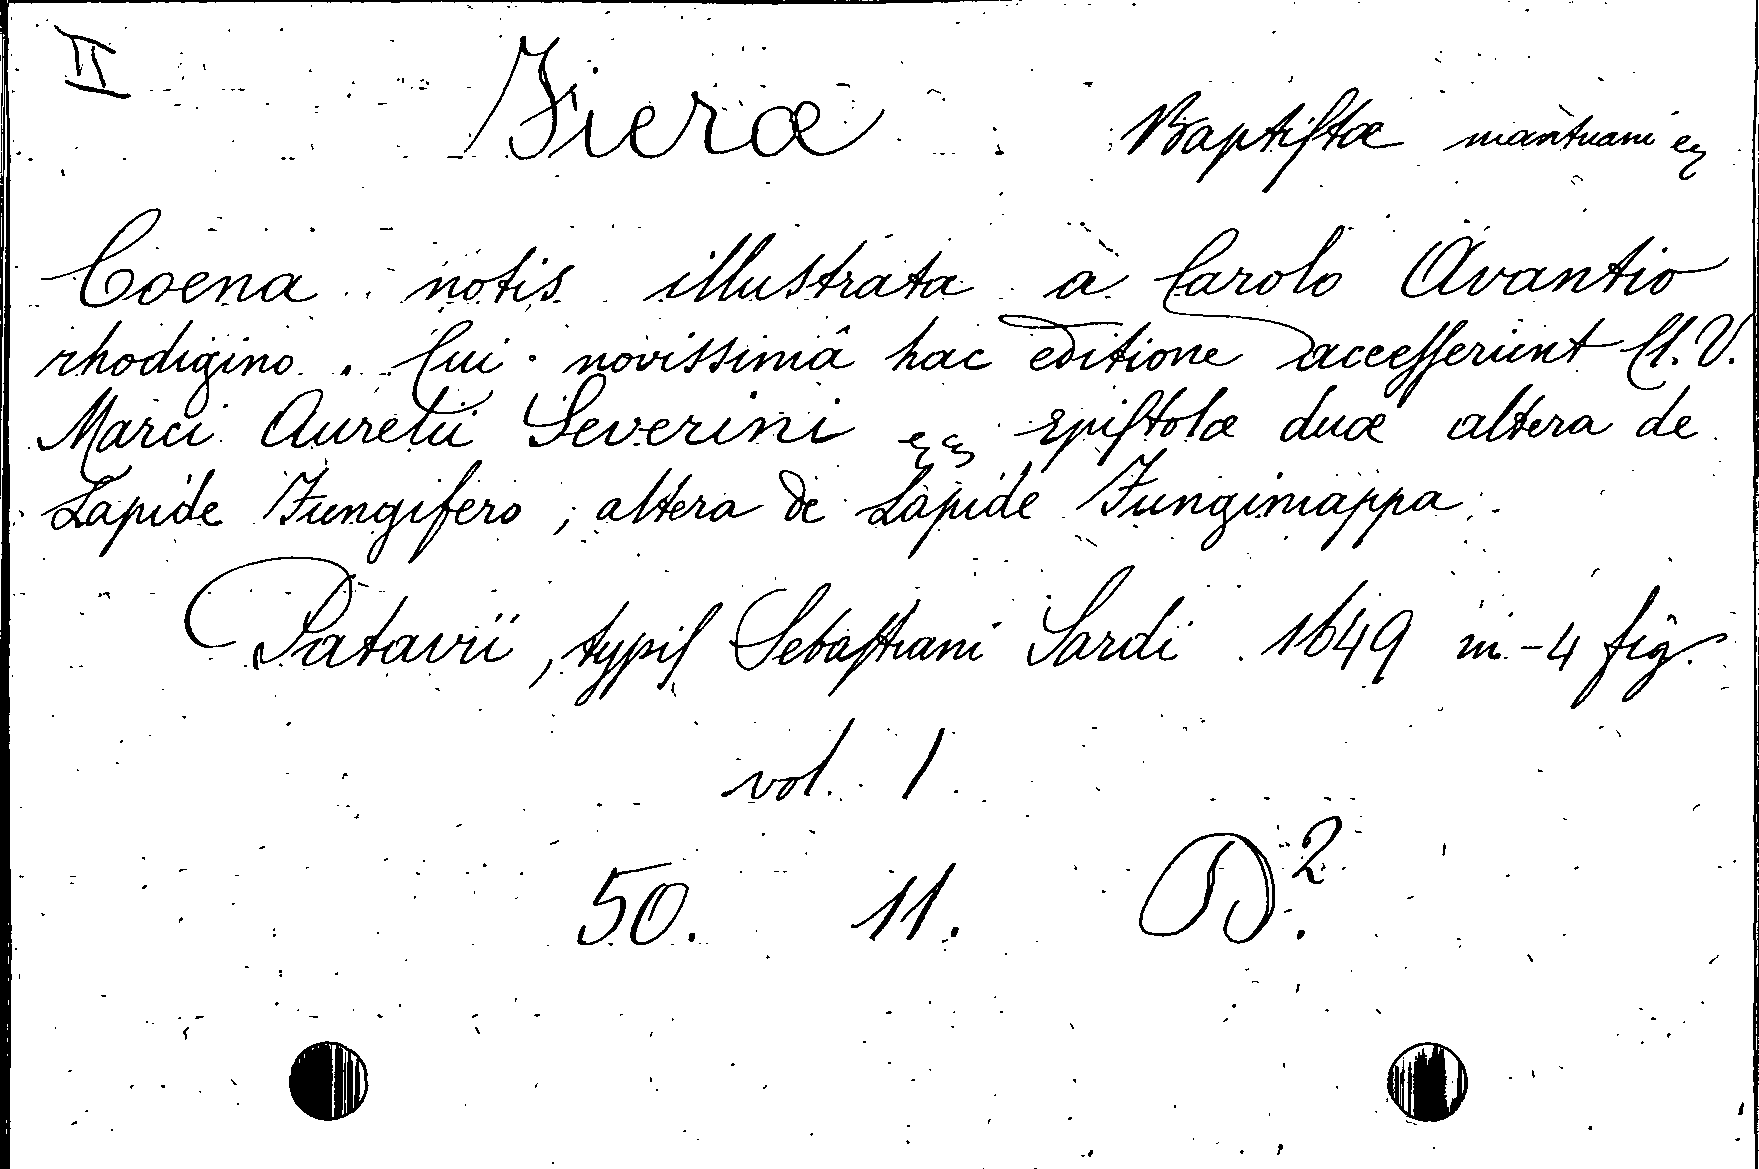 II
Fieræ Baptistæ mantuani eq
Coena notis illustrata à Carolo Avantio
rhodigino. Cui novissimâ hac editione accesserunt Cl. V.
Marci Aurelii Severini epistolæ duæ altera de
Lapide Fungifero, altera de Lapide Fungimappa.
Patavii, typis Sebastiani Sardi. 1649 in-4 fig.
vol. 1
50. 11. D².